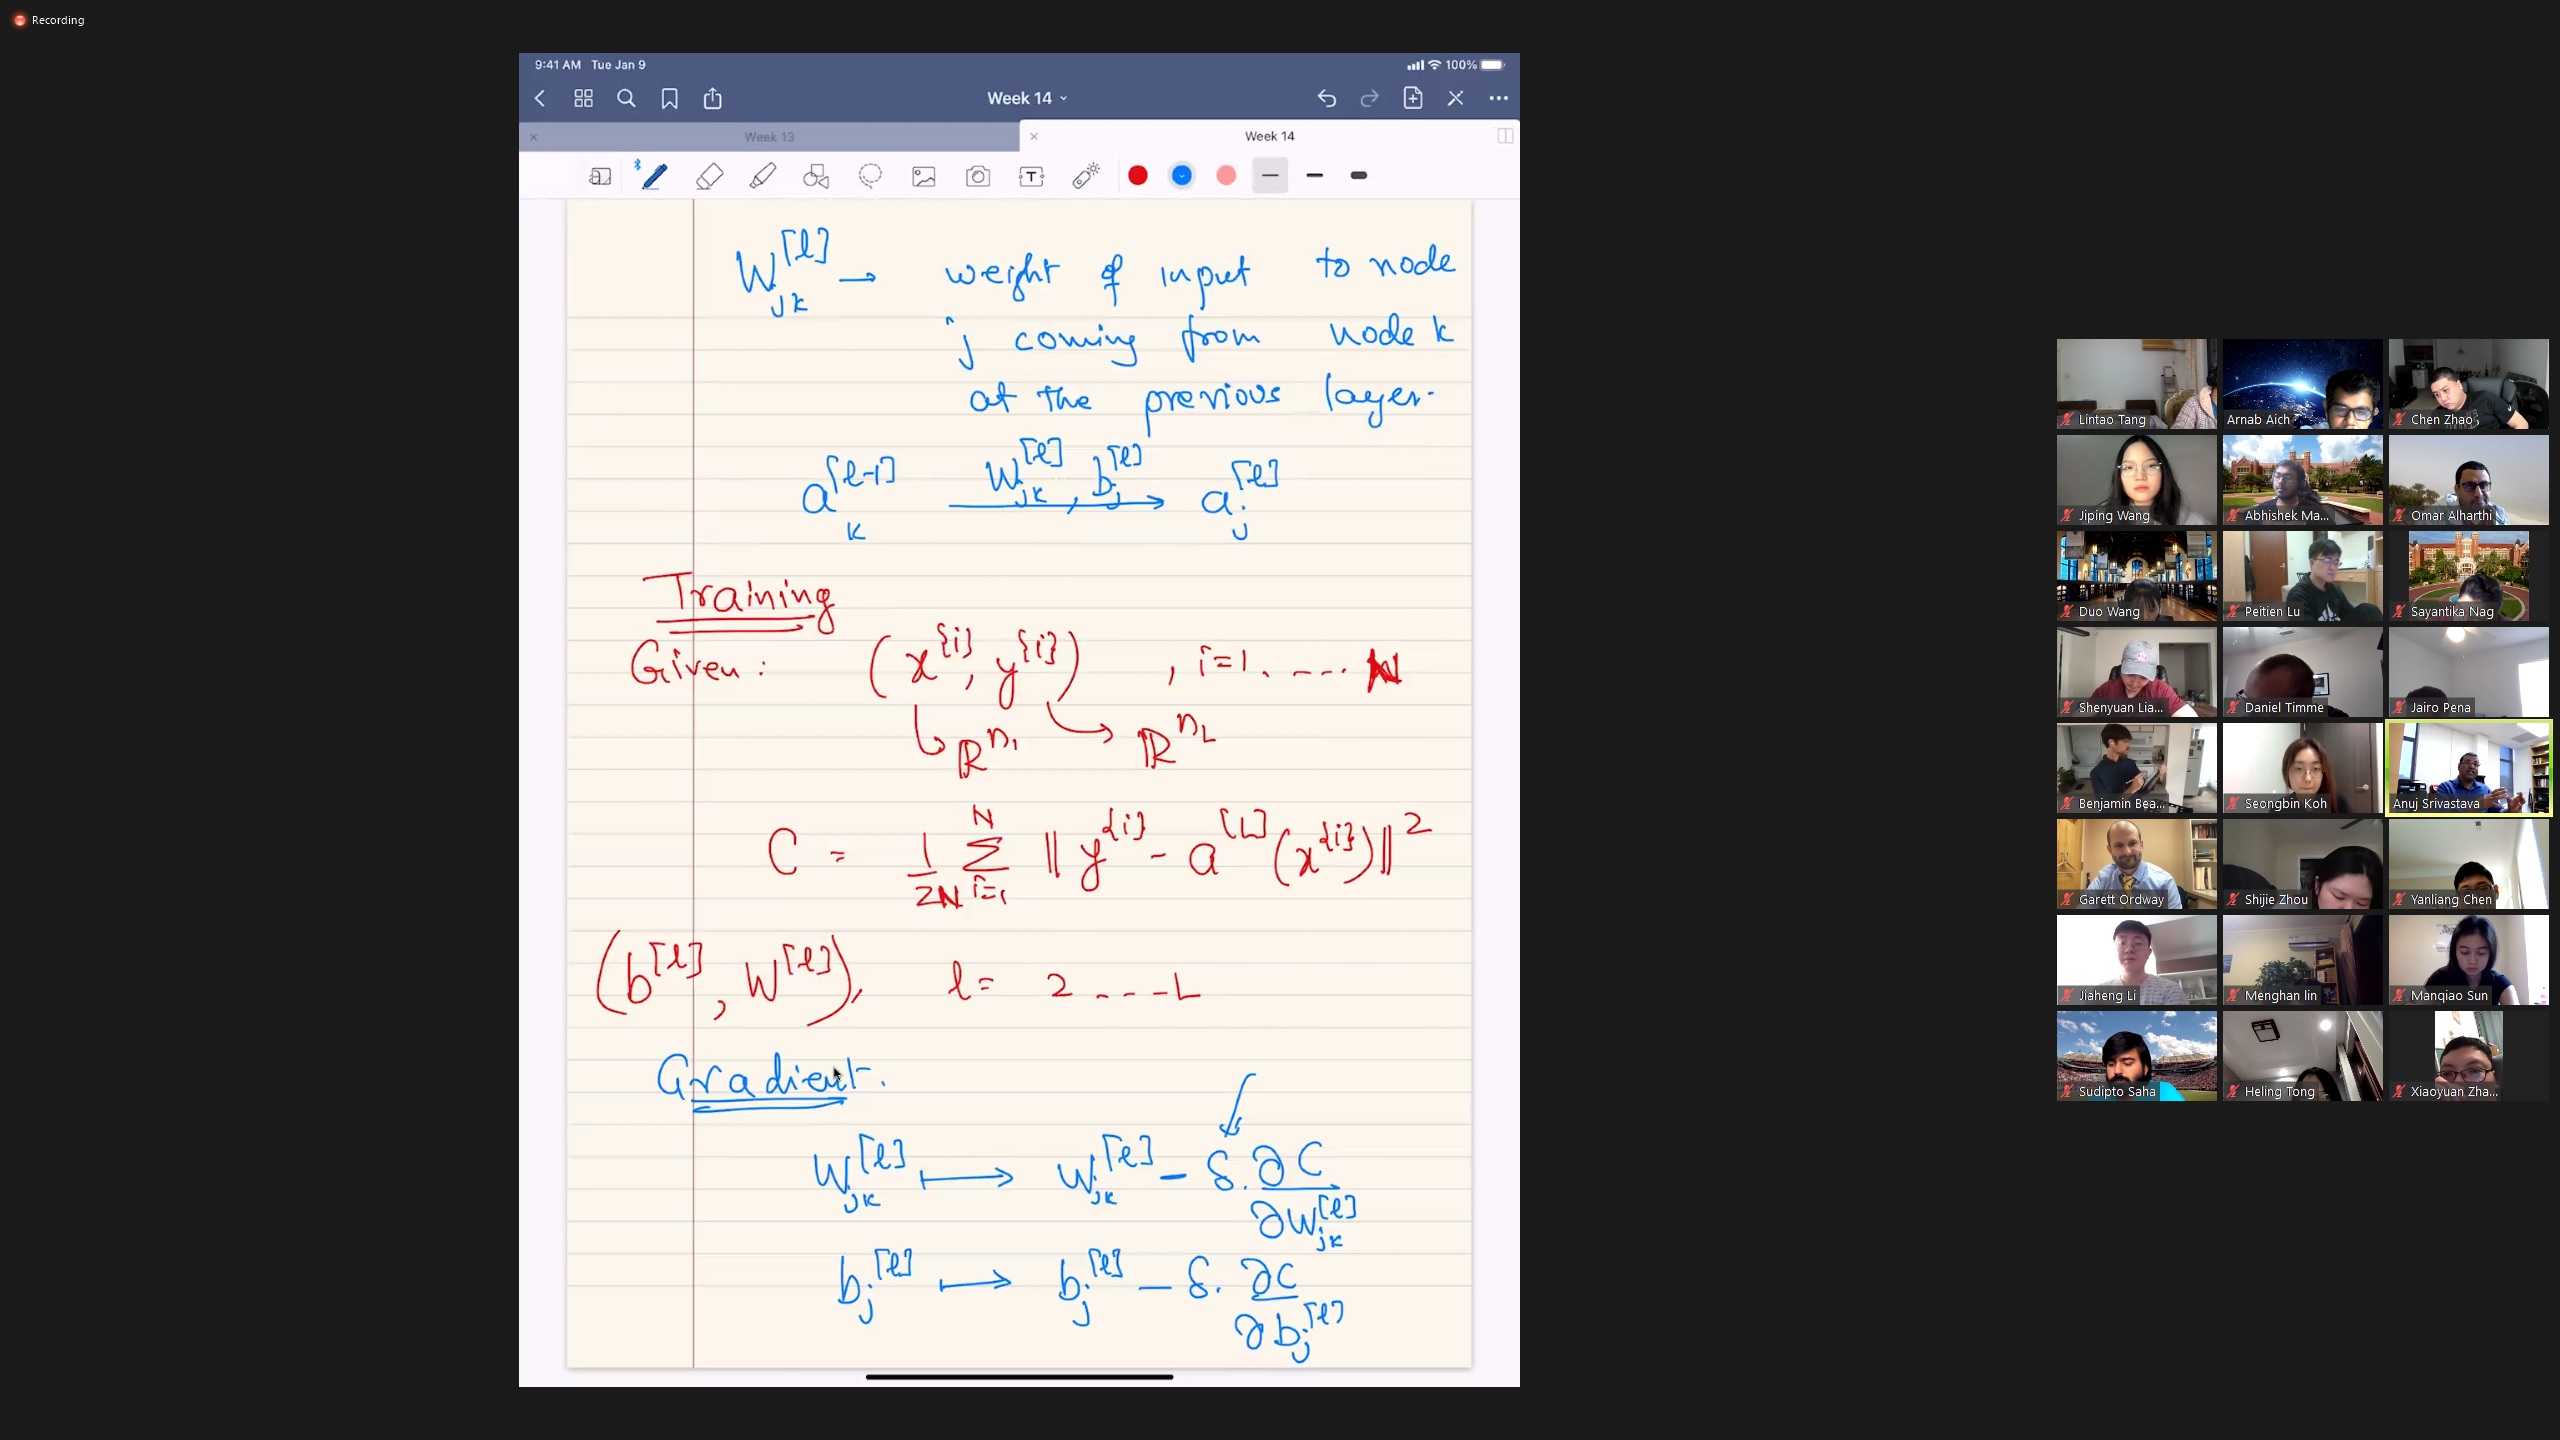 Recording
9:41 AM Tue Jan 9
100%
Week 14
Week 13
Week 14
W_{jk}^{[l]} → weight of input to node
j coming from node k
at the previous layer.
a_k^{[l-1]} W_{jk}^{[l]}, b_j^{[l]} → a_j^{[l]}
Training
Given: (x^{{i}}, y^{{i}}) , i=1. --.. N
ℝ^{n_1} ℝ^{n_L}
C = 1/2N Σ_{i=1}^{N} ‖ y^{{i}} - a^{[L]}(x^{{i}}) ‖^2
(b^{[l]}, W^{[l]}), l= 2 ---L
Gradient.
W_{jk}^{[l]} ↦ W_{jk}^{[l]} - δ. ∂C/∂W_{jk}^{[l]}
b_j^{[l]} ↦ b_j^{[l]} - δ. ∂C/∂b_j^{[l]}
Lintao Tang
Arnab Aich
Chen Zhao
Jiping Wang
Abhishek Ma...
Omar Alharthi
Duo Wang
Peitien Lu
Sayantika Nag
Shenyuan Lia...
Daniel Timme
Jairo Pena
Benjamin Bea...
Seongbin Koh
Anuj Srivastava
Garett Ordway
Shijie Zhou
Yanliang Chen
Jiaheng Li
Menghan lin
Manqiao Sun
Sudipto Saha
Heling Tong
Xiaoyuan Zha...